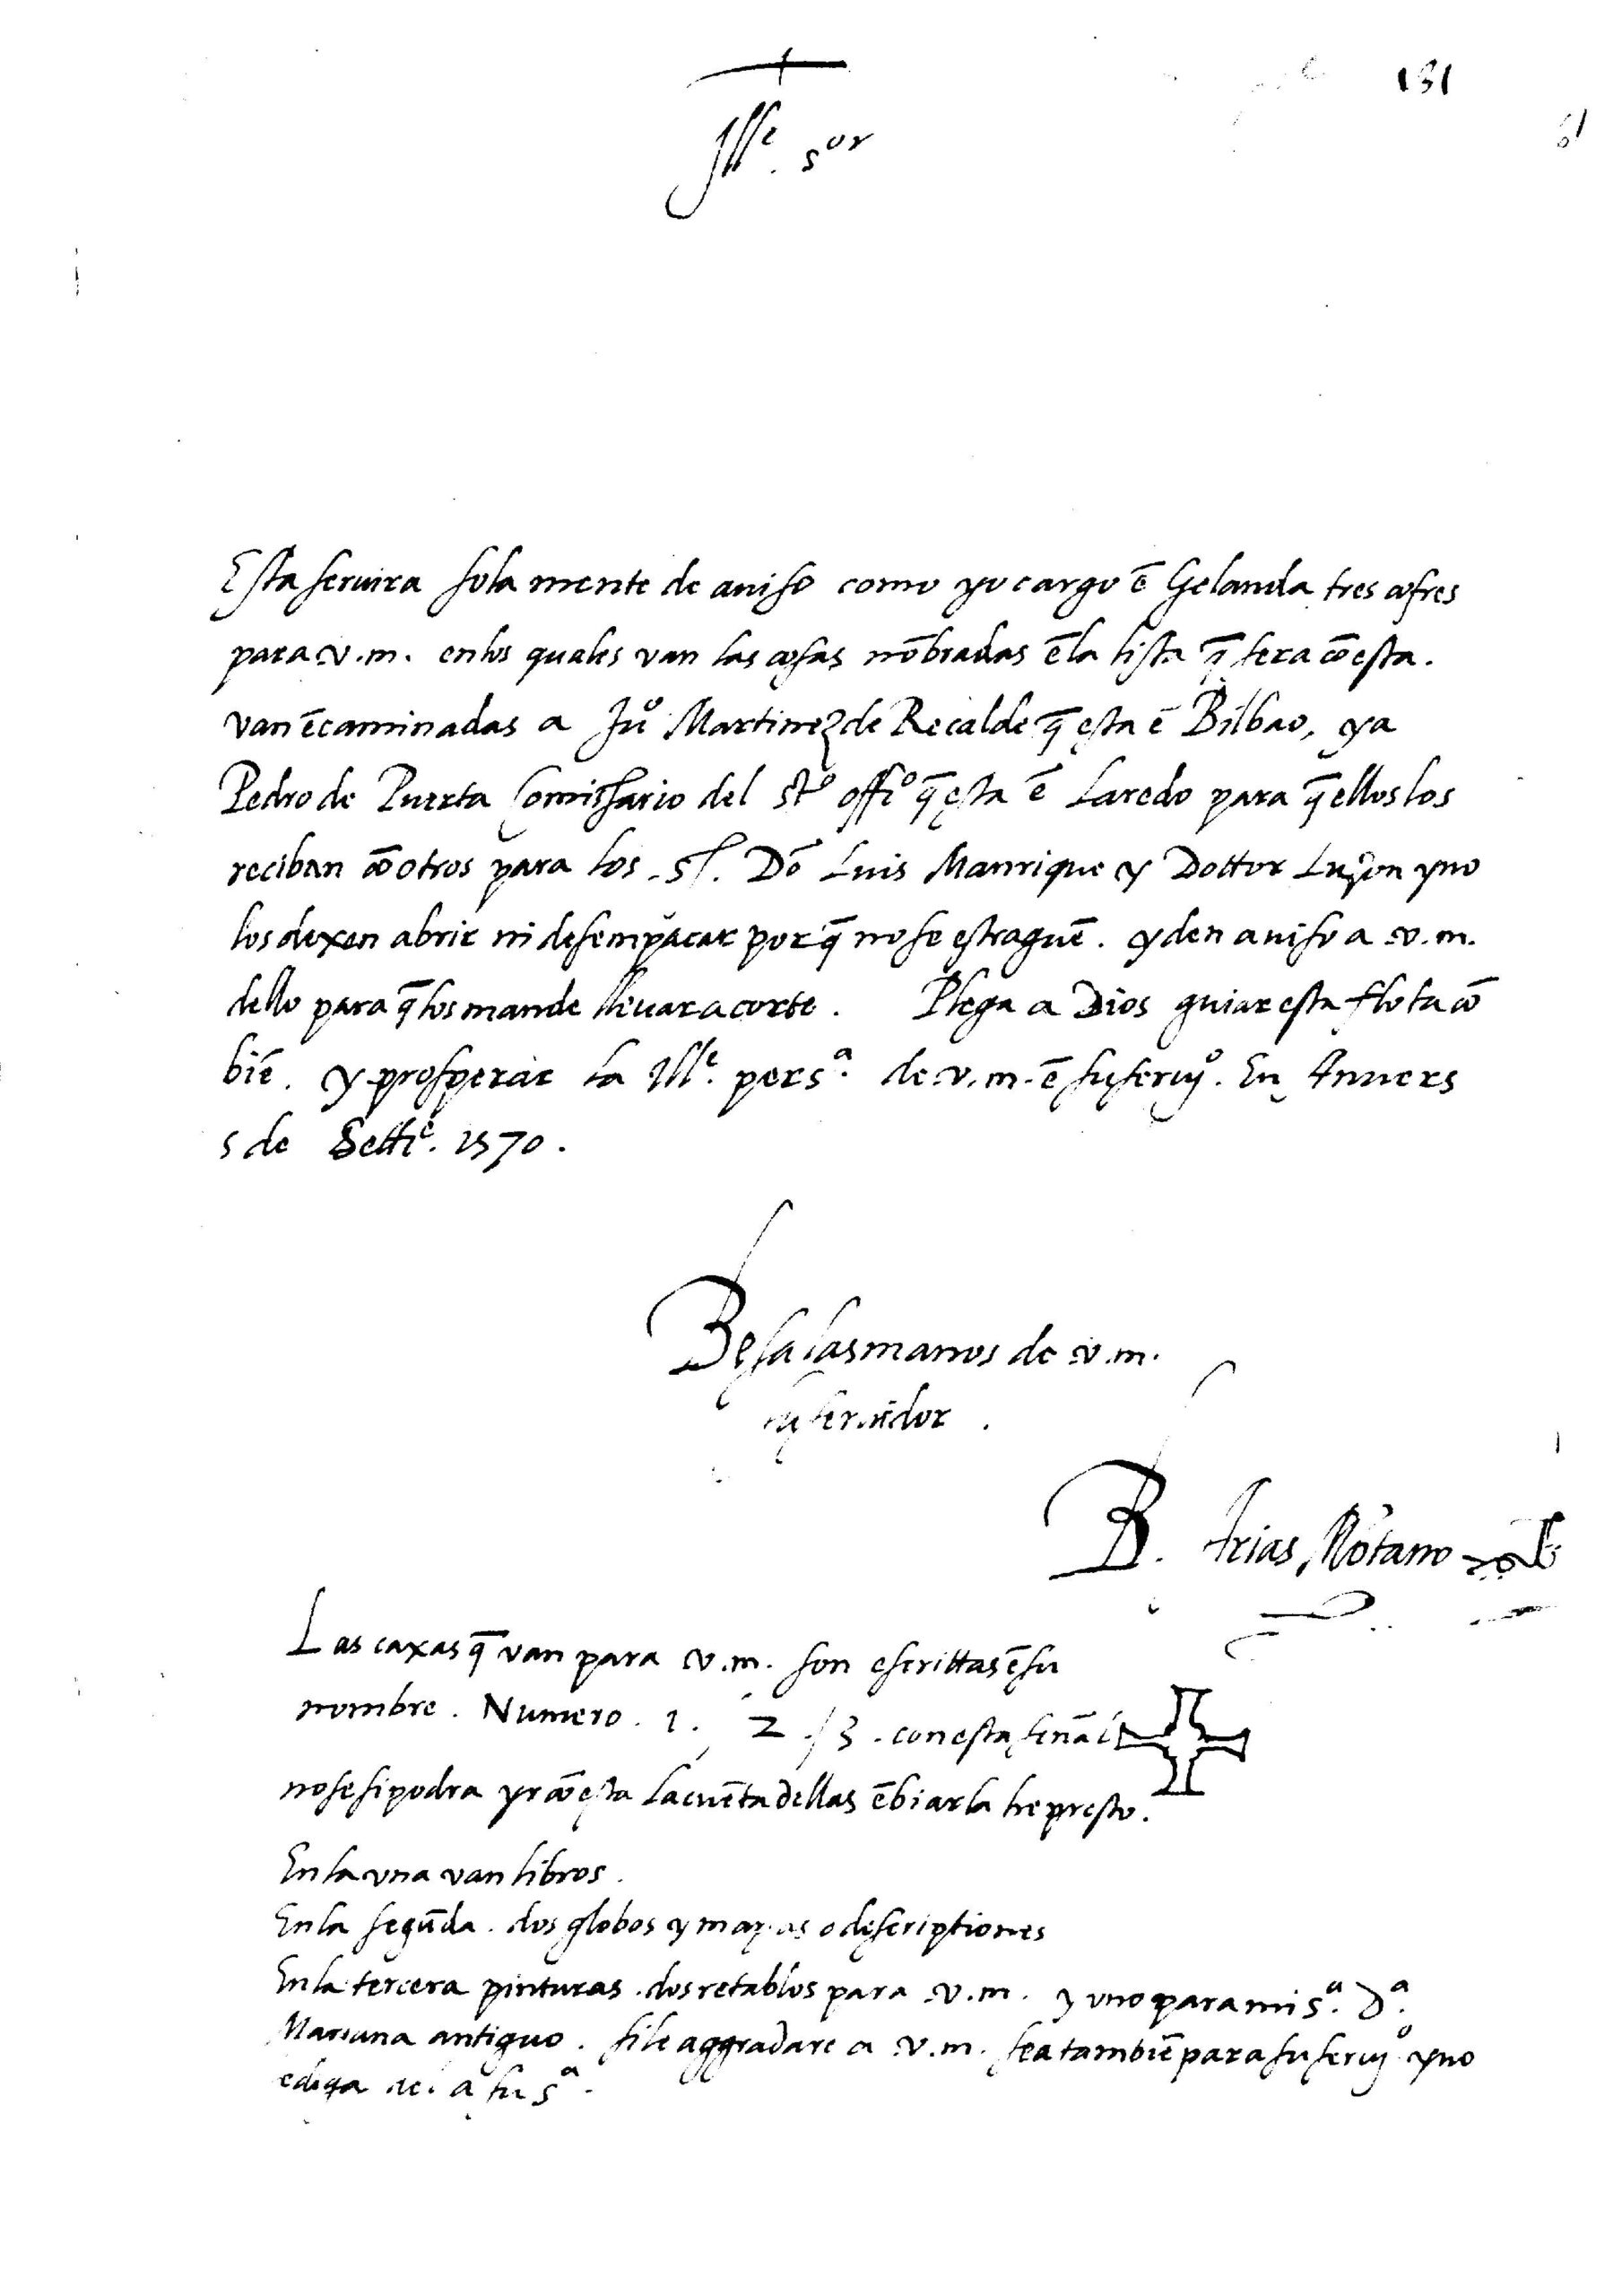 131
61
Ille. sor
Esta seruira sola mente de auiso como yo cargo ē Gelanda tres cofres
para v.m. en los quales van las cosas nōbradas ēla lista q̄ sera cō esta.
van ēcaminadas a Juº Martinez de Recalde q̄ esta ē Bilbao, y a
Pedro de Puerta Comissario del Stº offiº q̄ esta ē Laredo para q̄ ellos los
reciban cō otros para los. Sʳ. Dō Luis Manrique y Dottor Luzon y no
los dexen abrir ni desempacar por q̄ no se estraguē. y den auiso a v.m.
dello para q̄ los mande lleuar a corte. Plega a Dios guiar esta flota cō
biē. y prosperar la Ille. persª. de v.m. ē su seruiº. En Anuers
5 de Settiᵉ. 1570.
Besa las manos de v.m.
su seruidor.
B. Arias Mōtano
Las caxas q̄ van para v.m. son escrittas ē su
nombre. Numero. 1. 2. / 3. con esta señal
no se si podra yr cō esta la cuēta dellas ēbiar la he presto.
En la vna van libros.
En la segūda. dos globos y mapas o descriptiones
En la tercera pinturas. dos retablos para v.m. y uno para mi sª. Dª.
Mariana antiguo. si le aggradare a v.m. sea tambiē para su seruiº y no
a su sª.